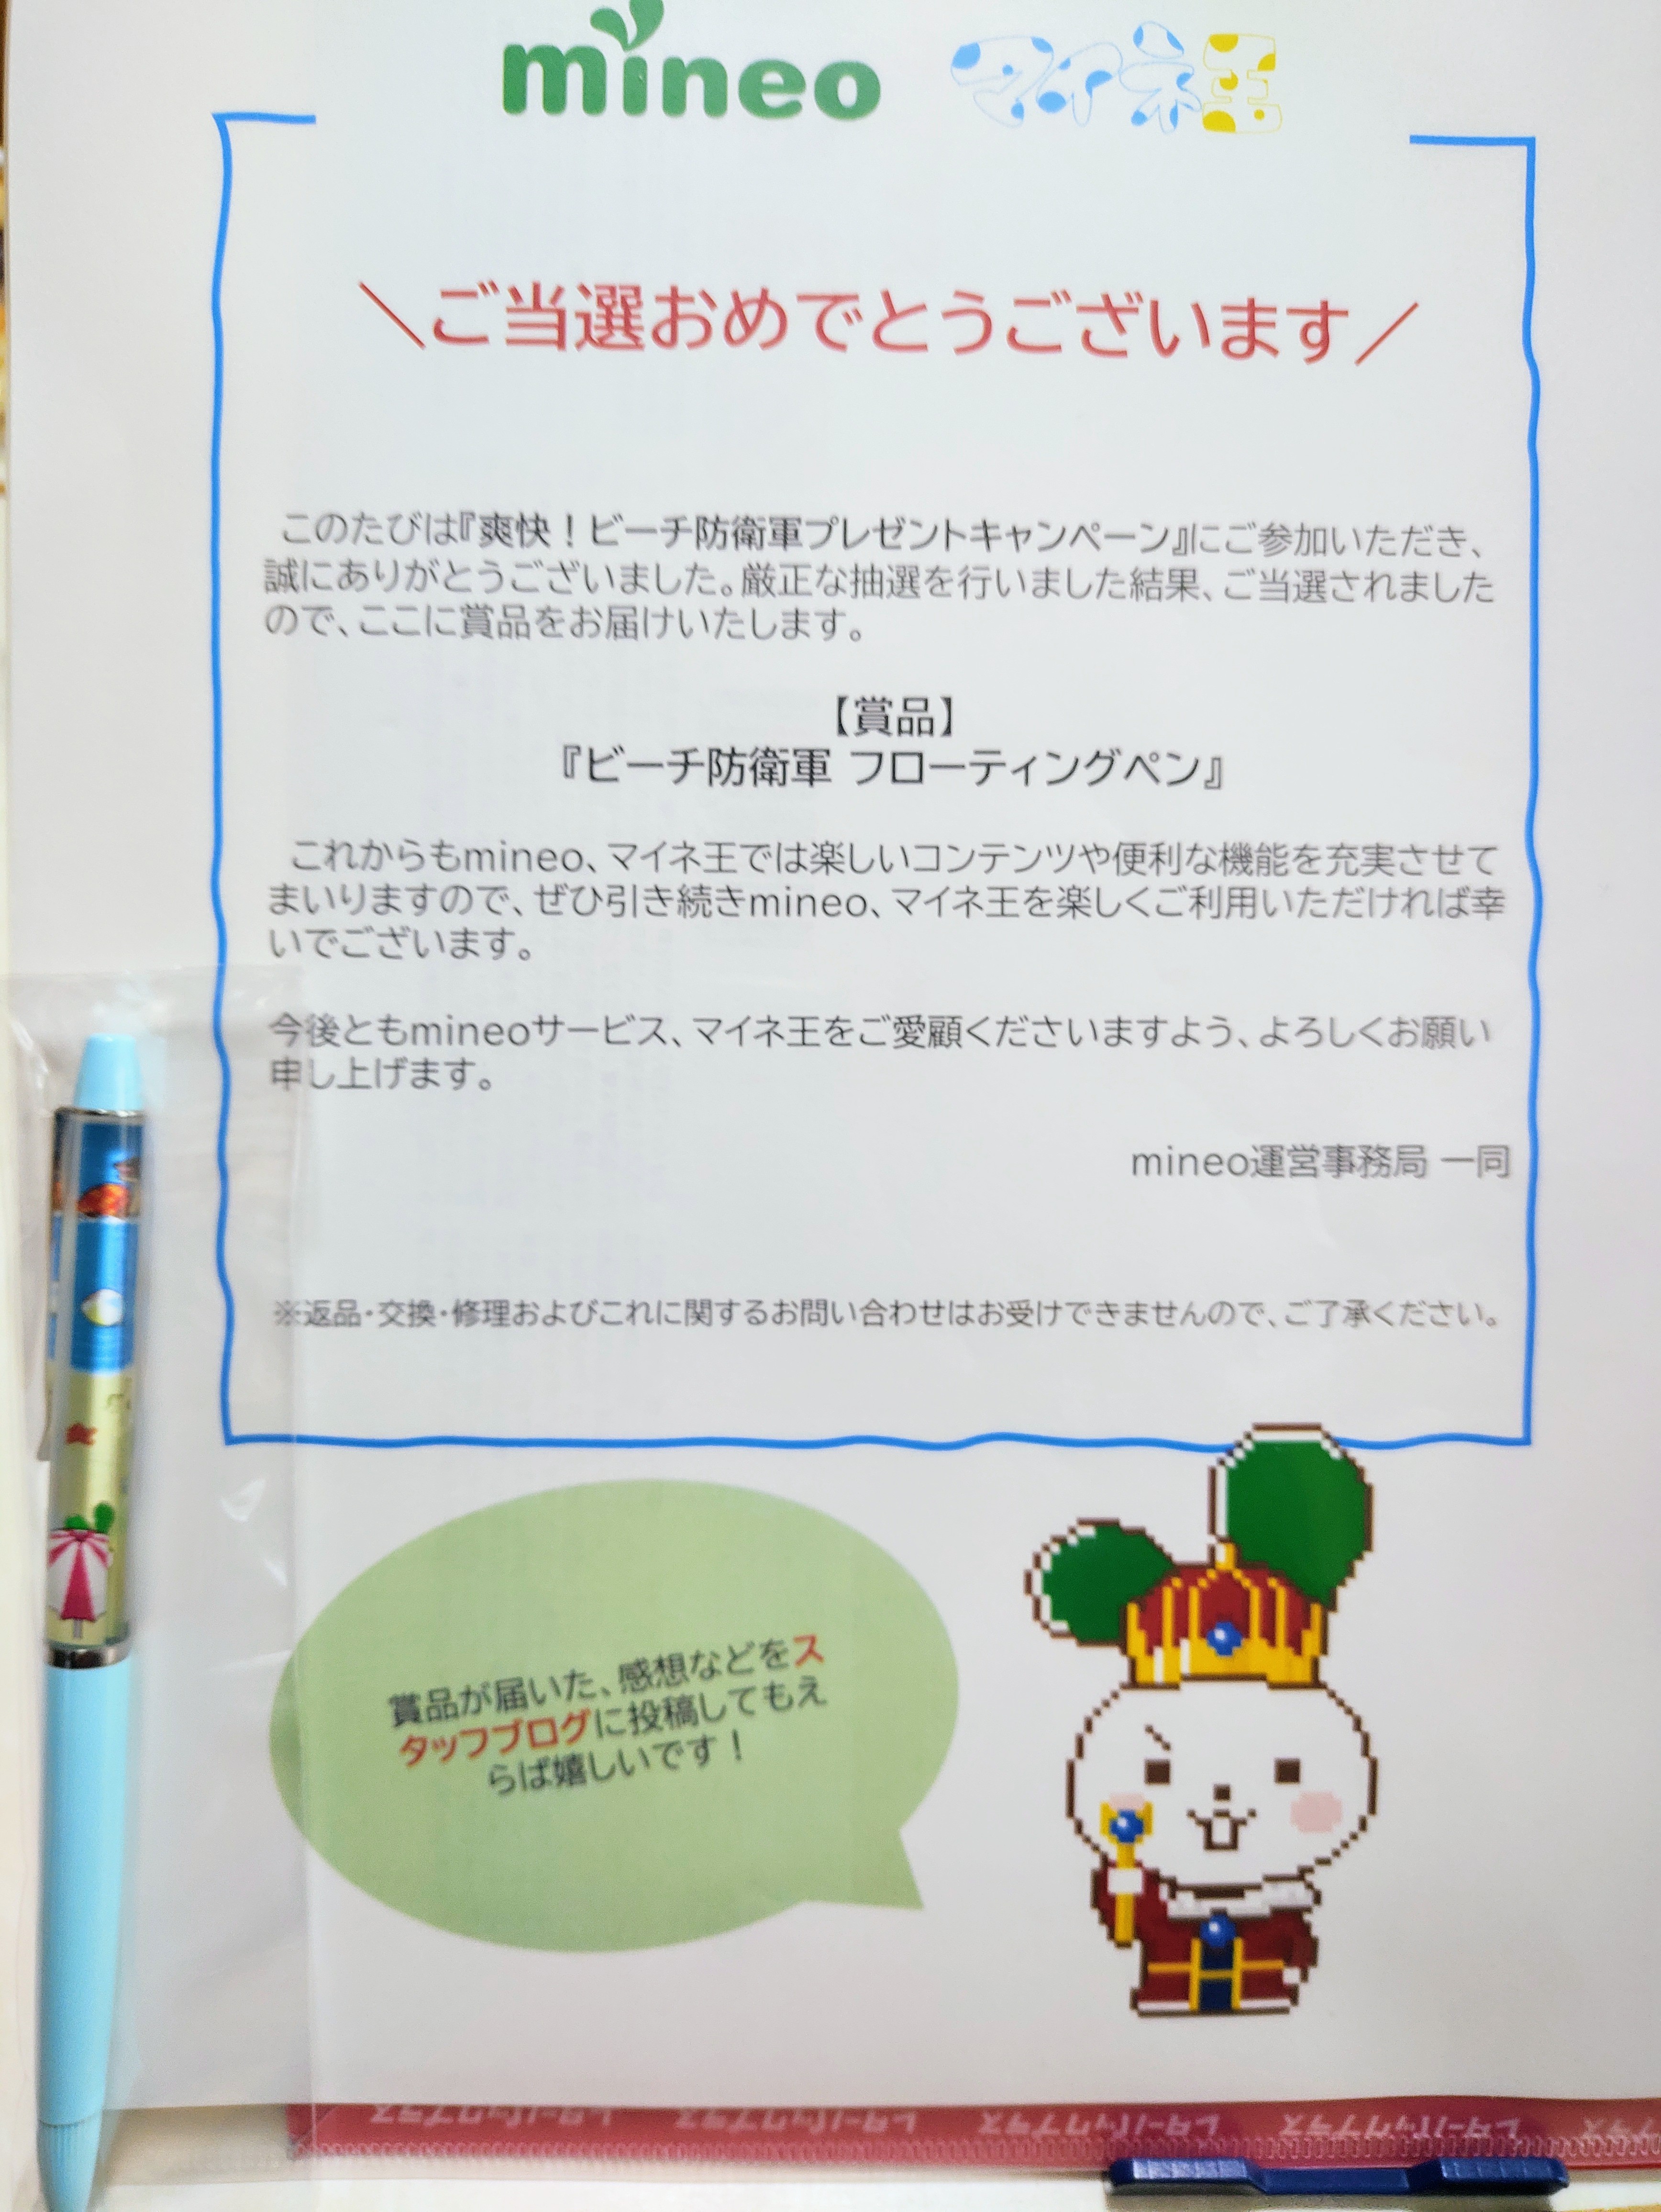 mineo マイネ王
＼ご当選おめでとうございます／
このたびは『爽快！ビーチ防衛軍プレゼントキャンペーン』にご参加いただき、
誠にありがとうございました。厳正な抽選を行いました結果、ご当選されました
ので、ここに賞品をお届けいたします。
【賞品】
『ビーチ防衛軍 フローティングペン』
これからもmineo、マイネ王では楽しいコンテンツや便利な機能を充実させて
まいりますので、ぜひ引き続きmineo、マイネ王を楽しくご利用いただければ幸
いでございます。
今後ともmineoサービス、マイネ王をご愛顧くださいますよう、よろしくお願い
申し上げます。
mineo運営事務局 一同
※返品・交換・修理およびこれに関するお問い合わせはお受けできませんので、ご了承ください。
賞品が届いた、感想などをス
タッフブログに投稿してもえ
らば嬉しいです！
レターパックプラス レターパックプラス レターパックプラス レターパックプラス プラス